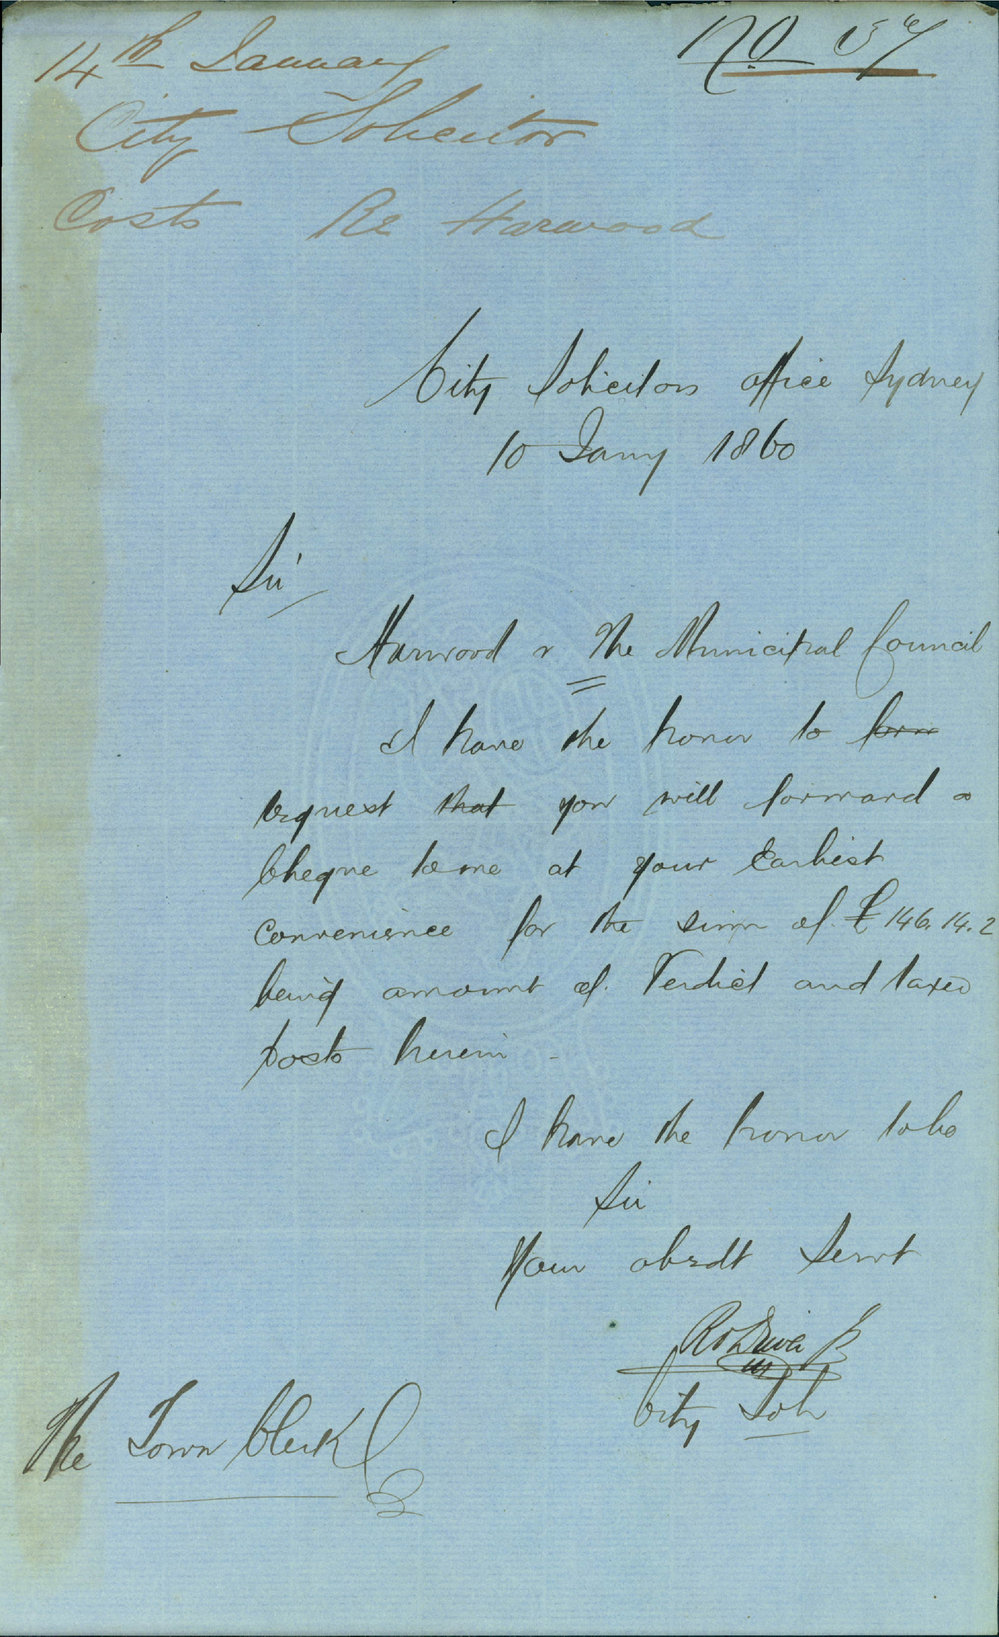 14th January
No 57
City Solicitor
Costs Re Harwood
City Solicitors office Sydney
10 Jany 1860
Sir
Harwood v The Municipal Council
I have the honor to forw
request that you will forward a
Cheque to me at your Earliest
convenience for the sum of £146.14.2
being amount of Verdict and taxed
Costs herein -
I have the honor to be
Sir
Your obedt Servt
City Solr
The Town Clerk